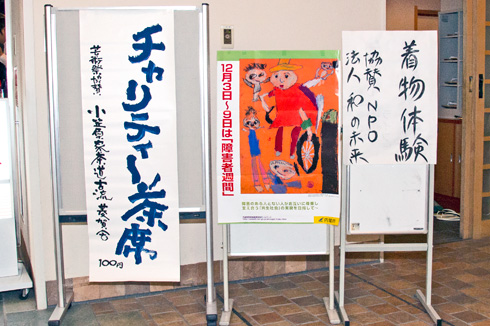 チャリティー茶席
芸術祭協賛
小笠原家茶道古流 葵賀会
100円
12月3日〜9日は「障害者週間」
着物体験
協賛 NPO
法人 和の未来